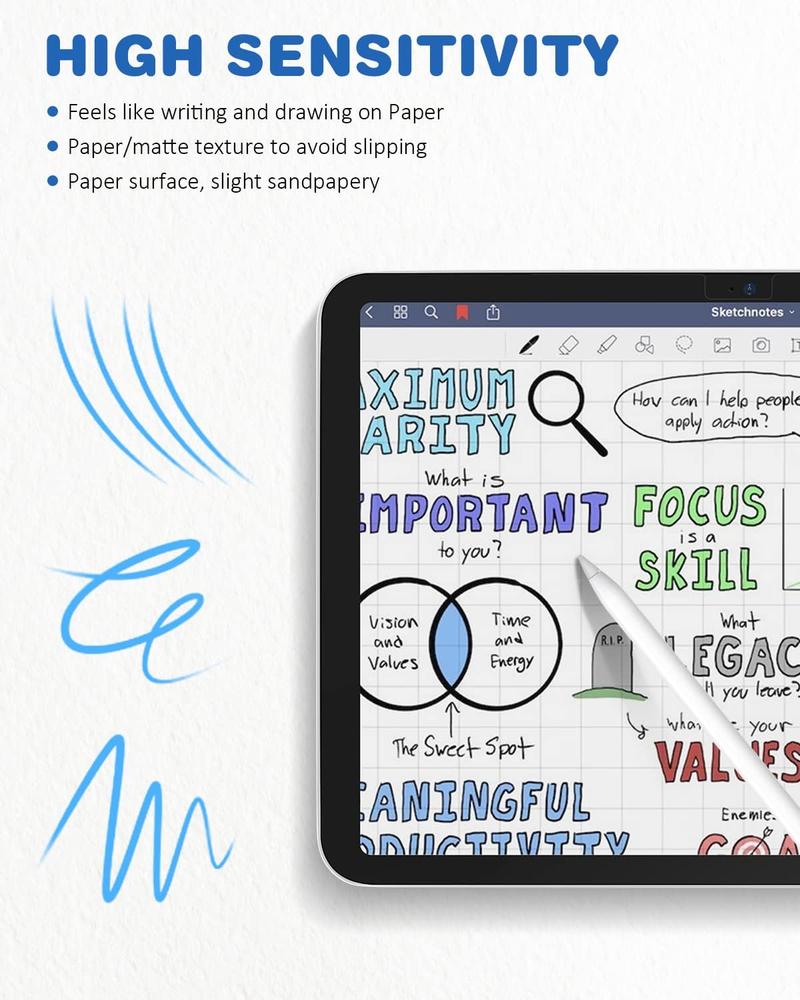 HIGH SENSITIVITY
Feels like writing and drawing on Paper
Paper/matte texture to avoid slipping
Paper surface, slight sandpapery
Sketchnotes
AXIMUM
ARITY
How can I help people
apply action?
What is
IMPORTANT
to you?
FOCUS
is a
SKILL
Vision
and
Values
Time
and
Energy
The Sweet Spot
R.I.P.
What
LEGAC
ll you leave?
what your
VALUES
EANINGFUL
ODUCTIVITY
Enemie
GOA